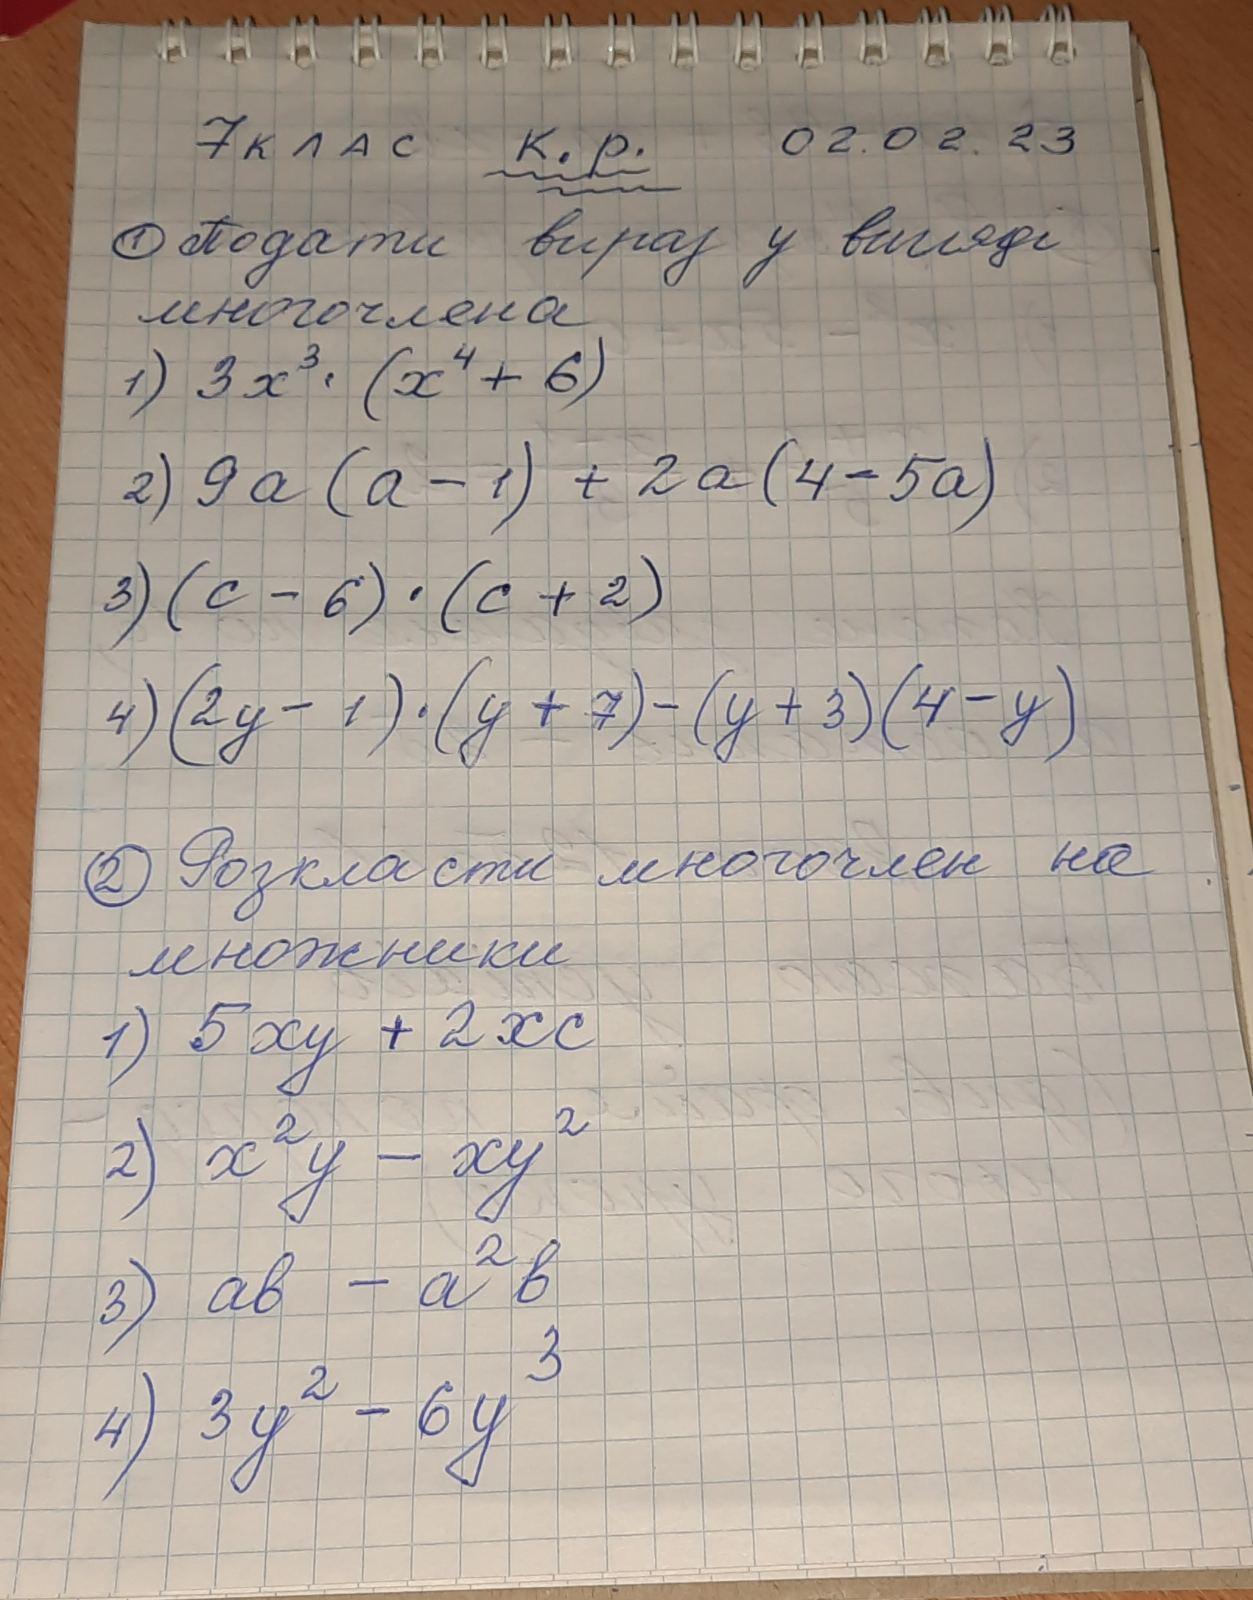 7 клас к. р. 02.02.23
① Подати вираз у вигляді
многочлена
1) 3x³ · (x⁴ + 6)
2) 9a (a - 1) + 2a (4 - 5a)
3) (c - 6) · (c + 2)
4) (2y - 1) · (y + 7) - (y + 3) (4 - y)
② Розкласти многочлен на
множники
1) 5xy + 2xc
2) x²y - xy²
3) ab - a²b
4) 3y² - 6y³